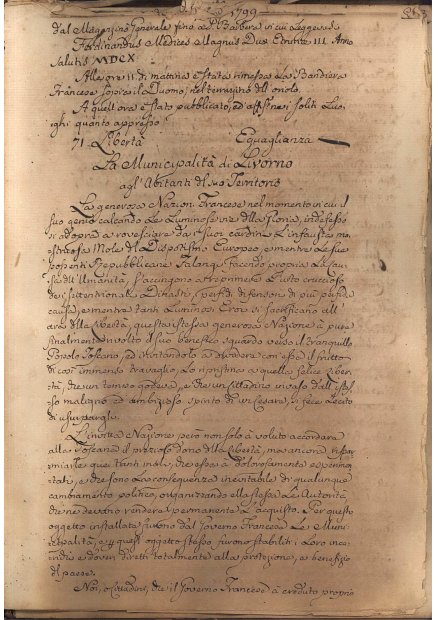 1799
dal Magazzino Generale sino a S. Barbara in cui Leggevasi
Ferdinandus Medices Magnus Dux Etruriæ III. Anno
Salutis MDCX.
Alle ore 11. di mattina è stata rimessa La Bandiera
Francese sopra il Duomo, nel terrazzino dell'orolo.
A quell'ora è stato pubblicato, ed affisso nei soliti Luo-
ghi quanto appresso
71. Libertà Eguaglianza
La Municipalità di Livorno
agl'Abitanti del suo Territorio
La generosa Nazione Francese nel momento in cui il
suo genio calcando Le Luminose vie della gloria, indefesso
si adopra a rovesciare da i suoi cardini L'infausta mo-
struosa Mole del Dispotismo Europeo, e mentre Le sue
possenti Repubblicane Falangi facendo propria La Cau-
sa dell'Umanità, s'accingono a reprimere
dei settentrionali perfidi difensori di più perfida
causa, e mentre tanti Luminosi Eroi si sacrificano all'
ara della Libertà, questa istessa generosa Nazione à pure
finalmente rivolto il suo benefico sguardo verso il tranquillo
Popolo Toscano, ed invitandolo a dividere con essa il frutto
di così immenso travaglio, Lo ripristina a quella felice Liber-
tà, che un tempo godeva, e che un Cittadino invaso dall'istes-
so maligno ed ambizioso spirito di un Cesare, si fece Lecito
di usurpargli.
L'invitta Nazione però non solo à voluto accordare
alla Toscana il prezioso dono della Libertà, ma ancora rispar-
miarle quei tanti mali, che essa à dolorosamente esperimen-
tati, e che sono La conseguenza inevitabile di qualunque
cambiamento politico, organizzando ella stessa Le Autorità,
che ne devono rendere permanente L'acquisto. Per questo
oggetto installate furono dal Governo Francese Le Muni-
cipalità, e per quest'oggetto stesso furono stabiliti i Loro inca-
richi e doveri diretti totalmente alla protezione, e benefizio
del paese.
Noi, o Cittadini, che il Governo Francese à creduto proprio